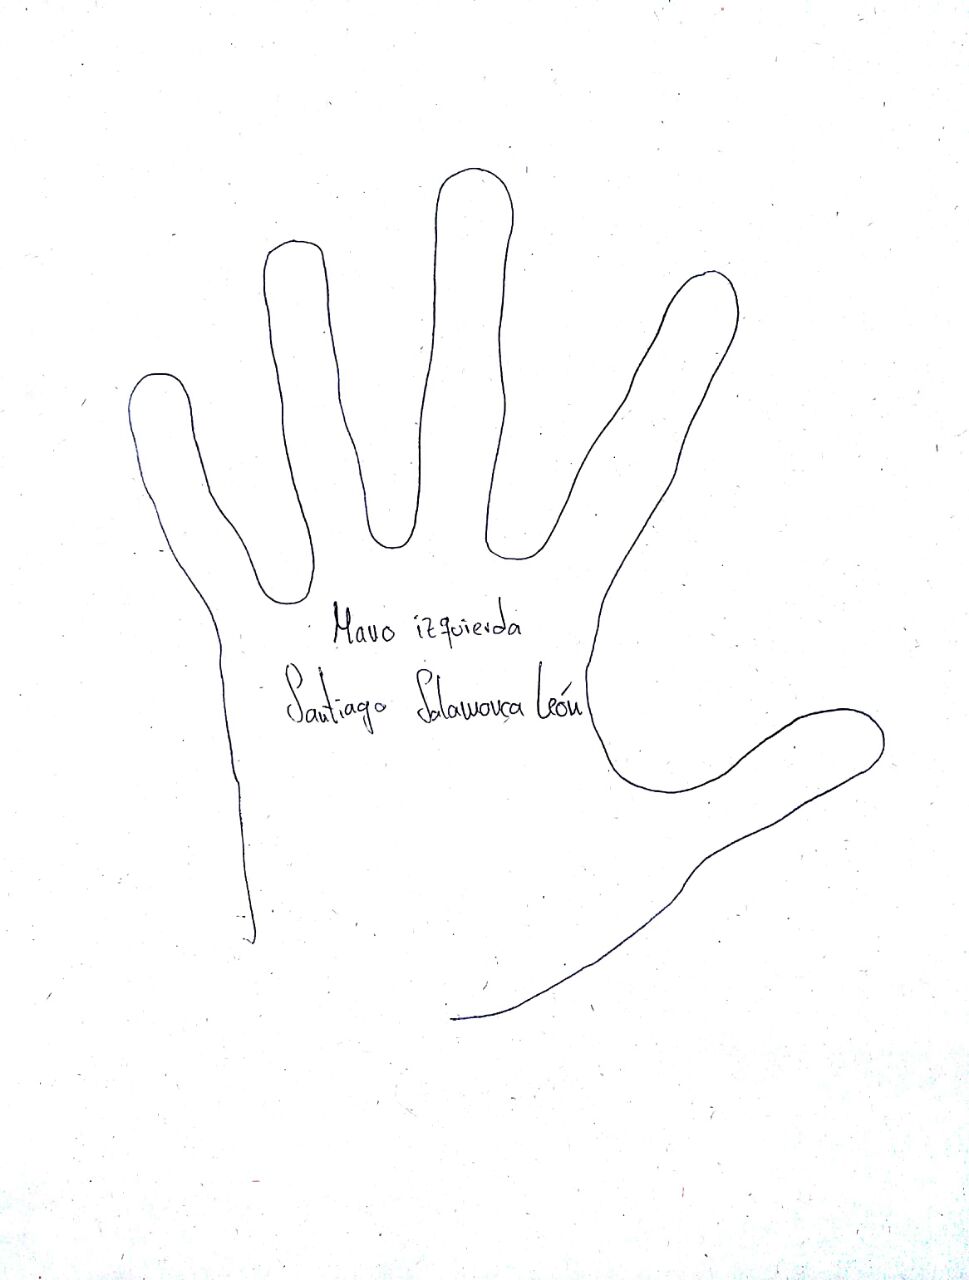 Mano izquierda
Santiago Salamanca León